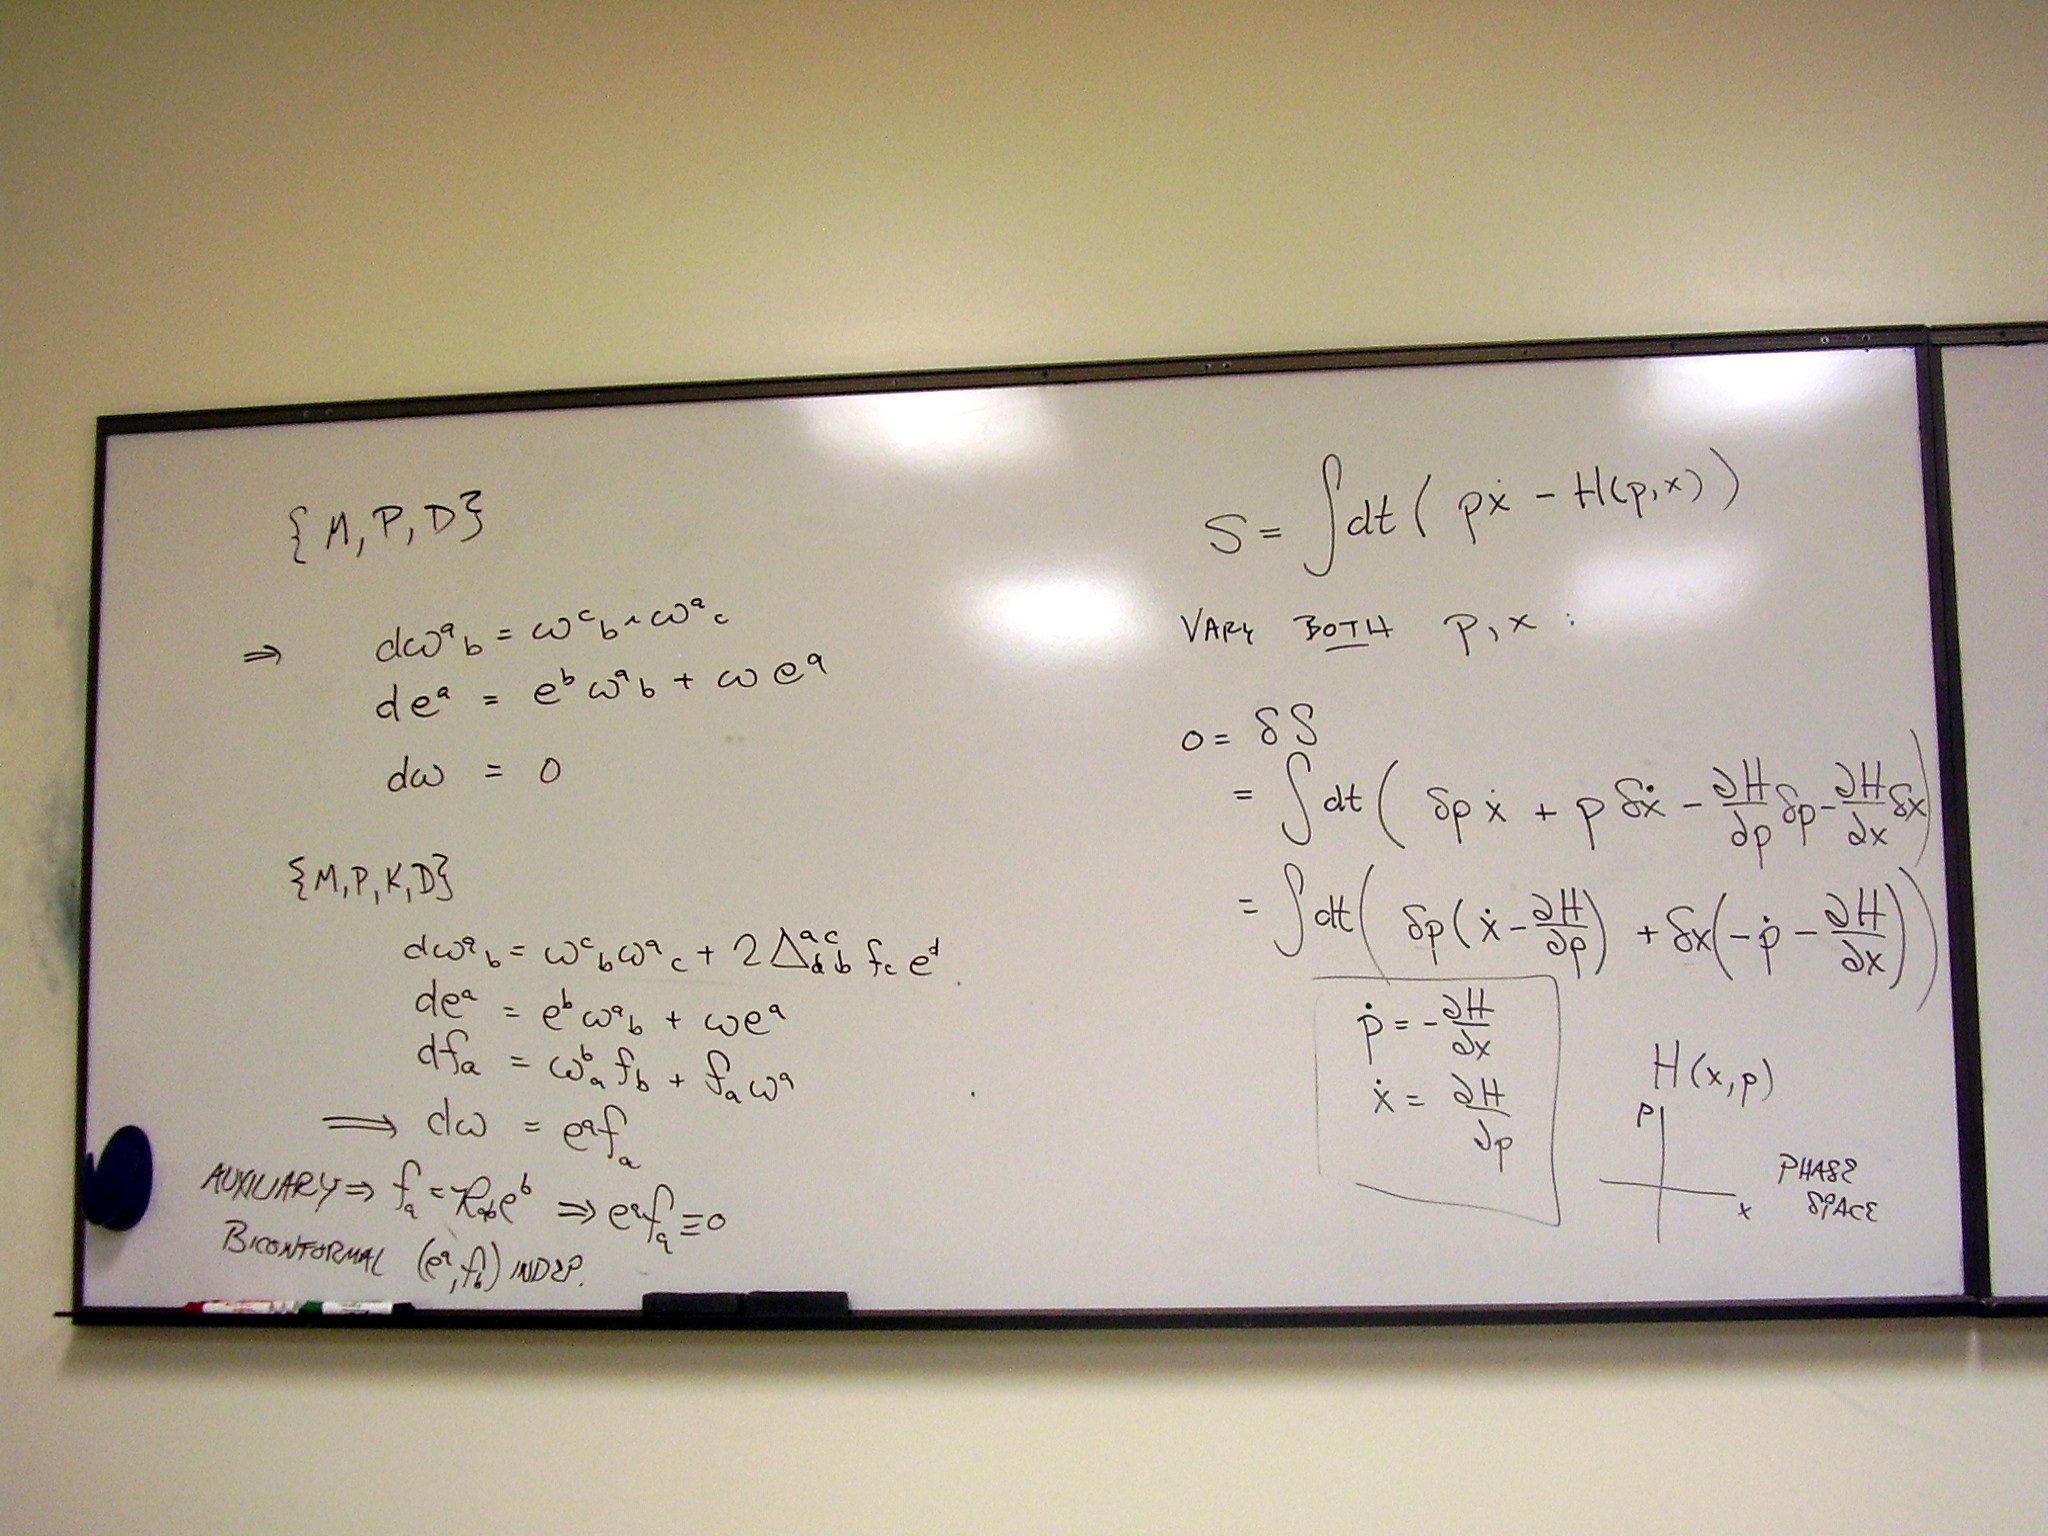 {M, P, D}
⇒ dω^a_b = ω^c_b ∧ ω^a_c
de^a = e^b ω^a_b + ω e^a
dω = 0
{M, P, K, D}
dω^a_b = ω^c_b ω^a_c + 2Δ^{ac}_{db} f_c e^d
de^a = e^b ω^a_b + ω e^a
df_a = ω^b_a f_b + f_a ω^a
⟹ dω = e^a f_a
AUXILIARY ⇒ f_a = R_{ab} e^b ⇒ e^a f_a ≡ 0
BICONFORMAL (e^a, f_b) INDEP.
S = ∫dt ( pẋ - H(p,x) )
VARY BOTH p, x :
0 = δS
= ∫dt ( δp ẋ + p δẋ - ∂H/∂p δp - ∂H/∂x δx )
= ∫dt ( δp ( ẋ - ∂H/∂p ) + δx ( -ṗ - ∂H/∂x ) )
ṗ = - ∂H/∂x
ẋ = ∂H/∂p
H(x,p)
P
x
PHASE
SPACE